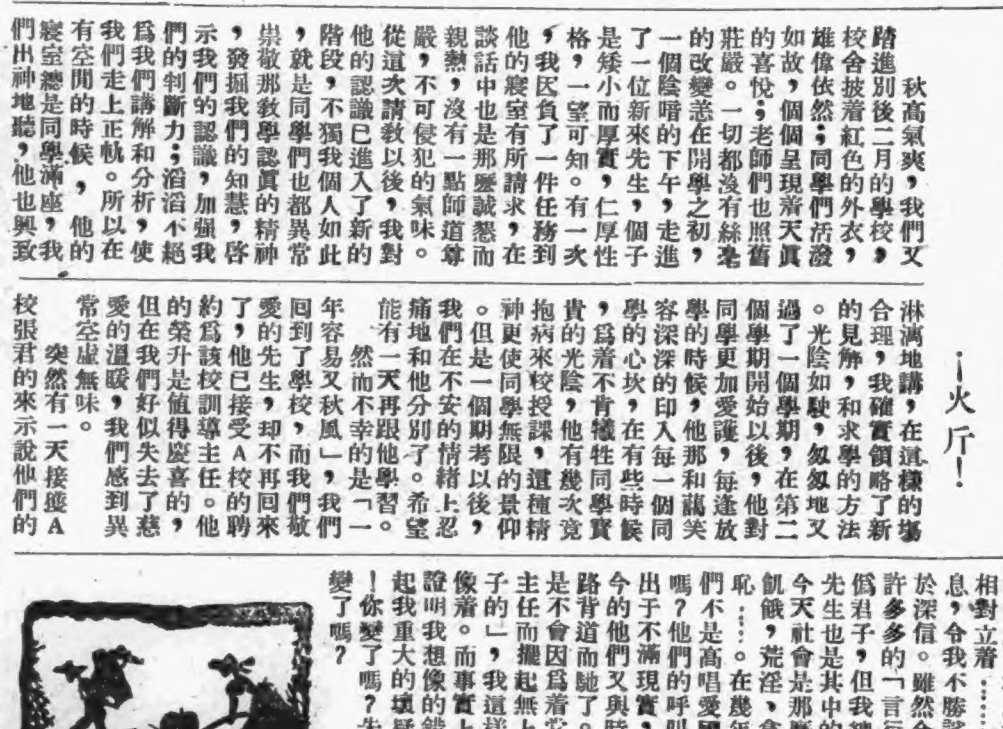 秋高氣爽，我們又
踏進別後二月的學校，
校舍披着紅色的外衣，
雄偉依然；同學們活潑
如故，個個呈現着天眞
的喜悅；老師們也照舊
莊嚴。一切都沒有絲毫
的改變恙在開學之初，
一個陰暗的下午，走進
了一位新來先生，個子
是矮小而厚實，仁厚性
格，一望可知。有一次
，我因負了一件任務到
他的寢室有所請求，在
談話中也是那麼誠懇而
親熱，沒有一點師道尊
嚴，不可侵犯的氣味。
從這次請教以後，我對
他的認識已進入了新的
階段，不獨我個人如此
，就是同學們也都異常
崇敬那教學認眞的精神
，發掘我們的知慧，啓
示我們的認識，加强我
們的判斷力；滔滔不絕
爲我們講解和分析，使
我們走上正軌。所以在
有空閒的時候，他的
寢室總是同學滿座，我
們出神地聽，他也興致
——火斤！
淋漓地講，在這樣的塲
合理，我確實領略了新
的見解，和求學的方法
。光陰如駛，匆匆地又
過了一個學期，在第二
個學期開始以後，他對
同學更加愛護，每逢放
學的時候，他那和藹笑
容深深的印入每一個同
學的心坎，在有些時候
，爲着不肯犧牲同學寳
貴的光陰，他有幾次竟
抱病來校授課，這種精
神更使同學無限的景仰
。但是一個期考以後，
我們在不安的情緒上忍
痛地和他分別了。希望
能有一天再跟他學習。
然而不幸的是「一
年容易又秋風」，我們
囘到了學校，而我們敬
愛的先生，却不再囘來
了，他已接受A校的聘
約爲該校訓導主任。他
的榮升是值得慶喜的，
但在我們好似失去了慈
愛的溫暖，我們感到異
常空虛無味。
突然有一天接獲A
校張君的來示說他們的
相對立着……
息，令我不勝詫
於深信。雖然今
許多多的「言行
僞君子，但我總
先生也是其中的
今天社會是那麼
飢餓，荒淫、貪
恥……。在幾年
們不是高唱愛國
嗎？他們的呼叫
出于不滿現實，
今的他們又與時
路背道而馳了。
是不會因爲着當
主任而擺起無上
子的」，我這樣
像着。而事實上
證明我想像的錯
起我重大的壞疑
！你變了嗎？先
變了嗎？